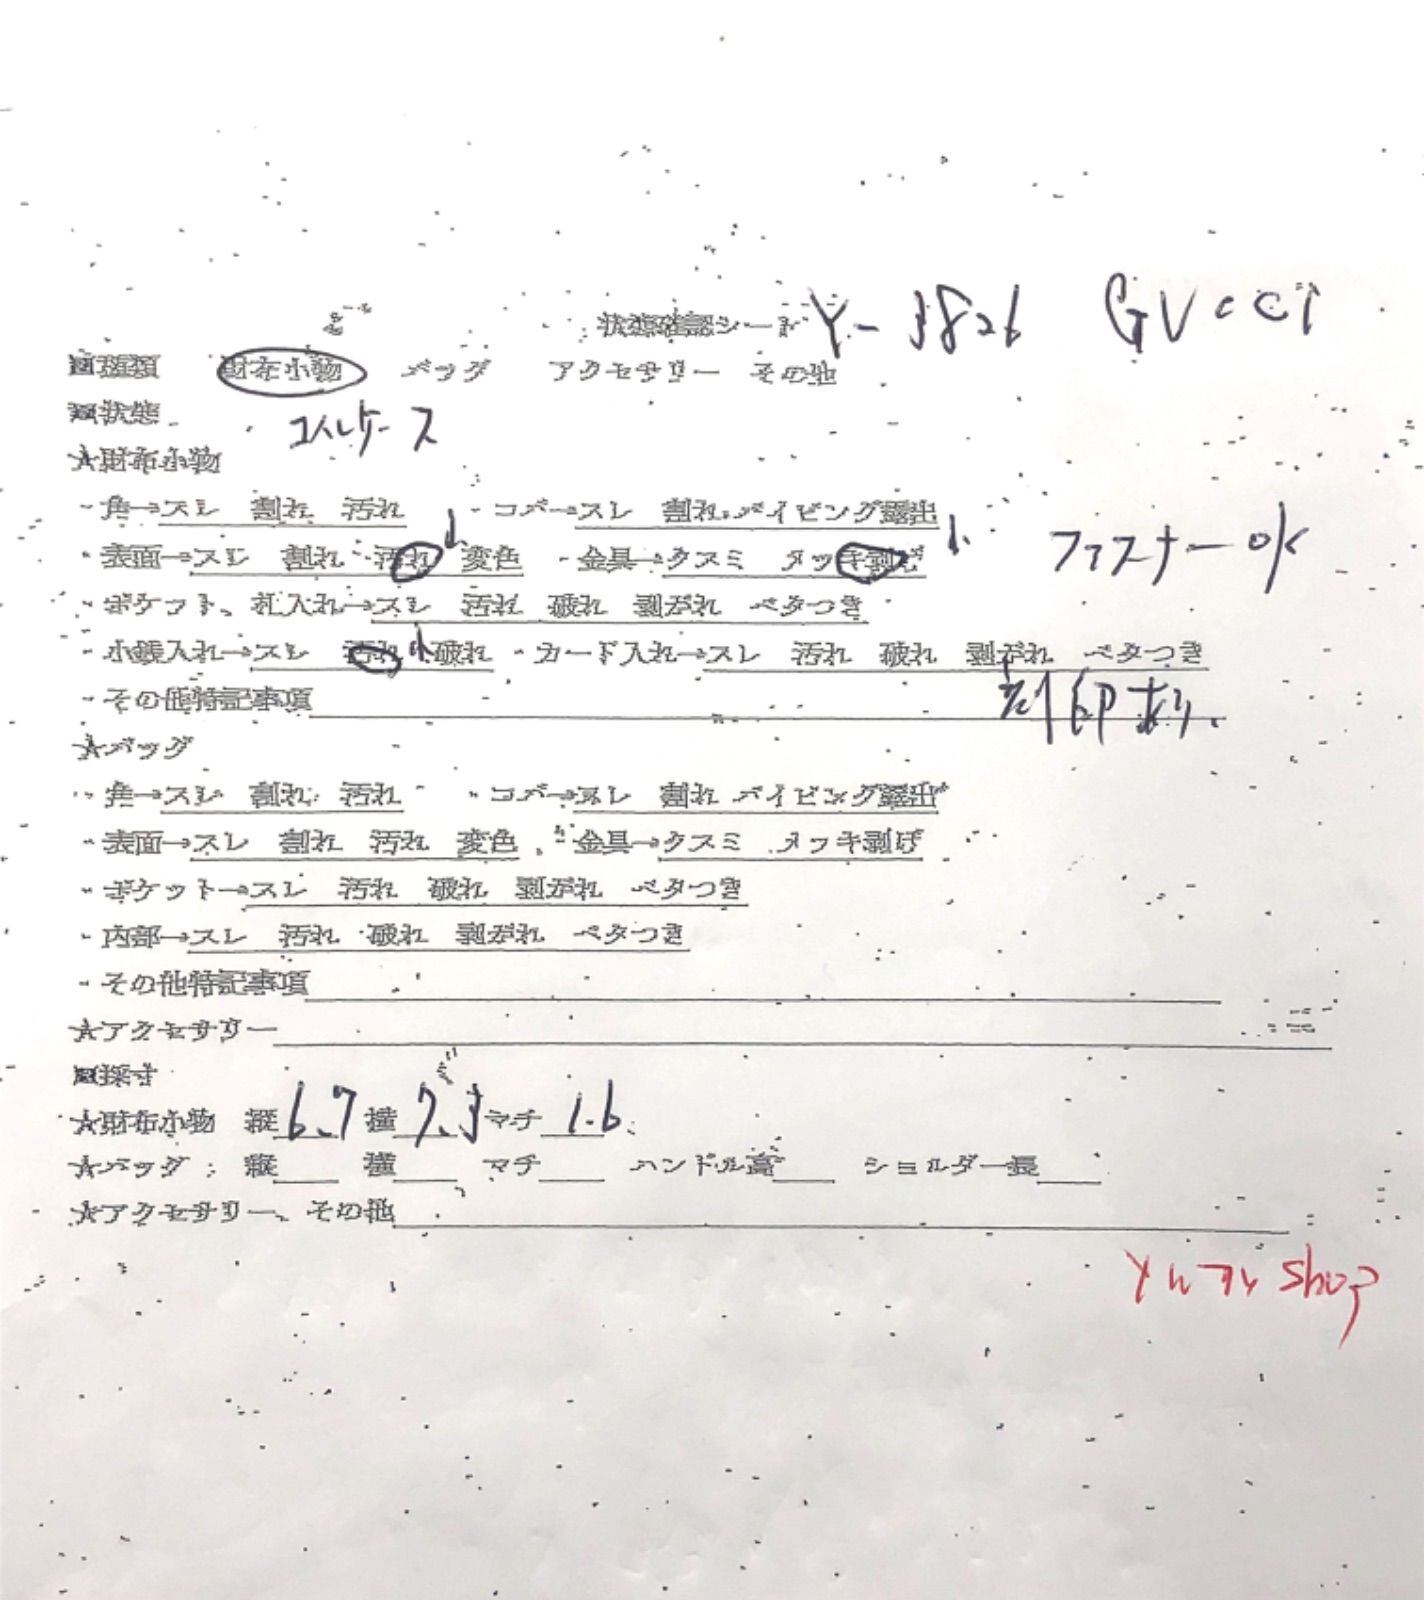 状態確認シート Y-3826 GUCCI
■種類 財布小物 バッグ アクセサリー その他
■状態 コインケース
★財布小物
・角→スレ 割れ 汚れ ・コバ→スレ 割れ パイピング露出
・表面→スレ 割れ 汚れ 小 変色 ・金具→クスミ メッキ剥げ 小 ファスナーOK
・ポケット、札入れ→スレ 汚れ 破れ 剥がれ ベタつき
・小銭入れ→スレ 汚れ 小 破れ ・カード入れ→スレ 汚れ 破れ 剥がれ ベタつき
・その他特記事項 刻印あり
★バッグ
・角→スレ 割れ 汚れ ・コバ→スレ 割れ パイピング露出
・表面→スレ 割れ 汚れ 変色 ・金具→クスミ メッキ剥げ
・ポケット→スレ 汚れ 破れ 剥がれ ベタつき
・内部→スレ 汚れ 破れ 剥がれ ベタつき
・その他特記事項
★アクセサリー
■採寸
★財布小物 縦6.7 横7.3 マチ1.6
★バッグ: 縦 横 マチ ハンドル高 ショルダー長
★アクセサリー、その他
shop